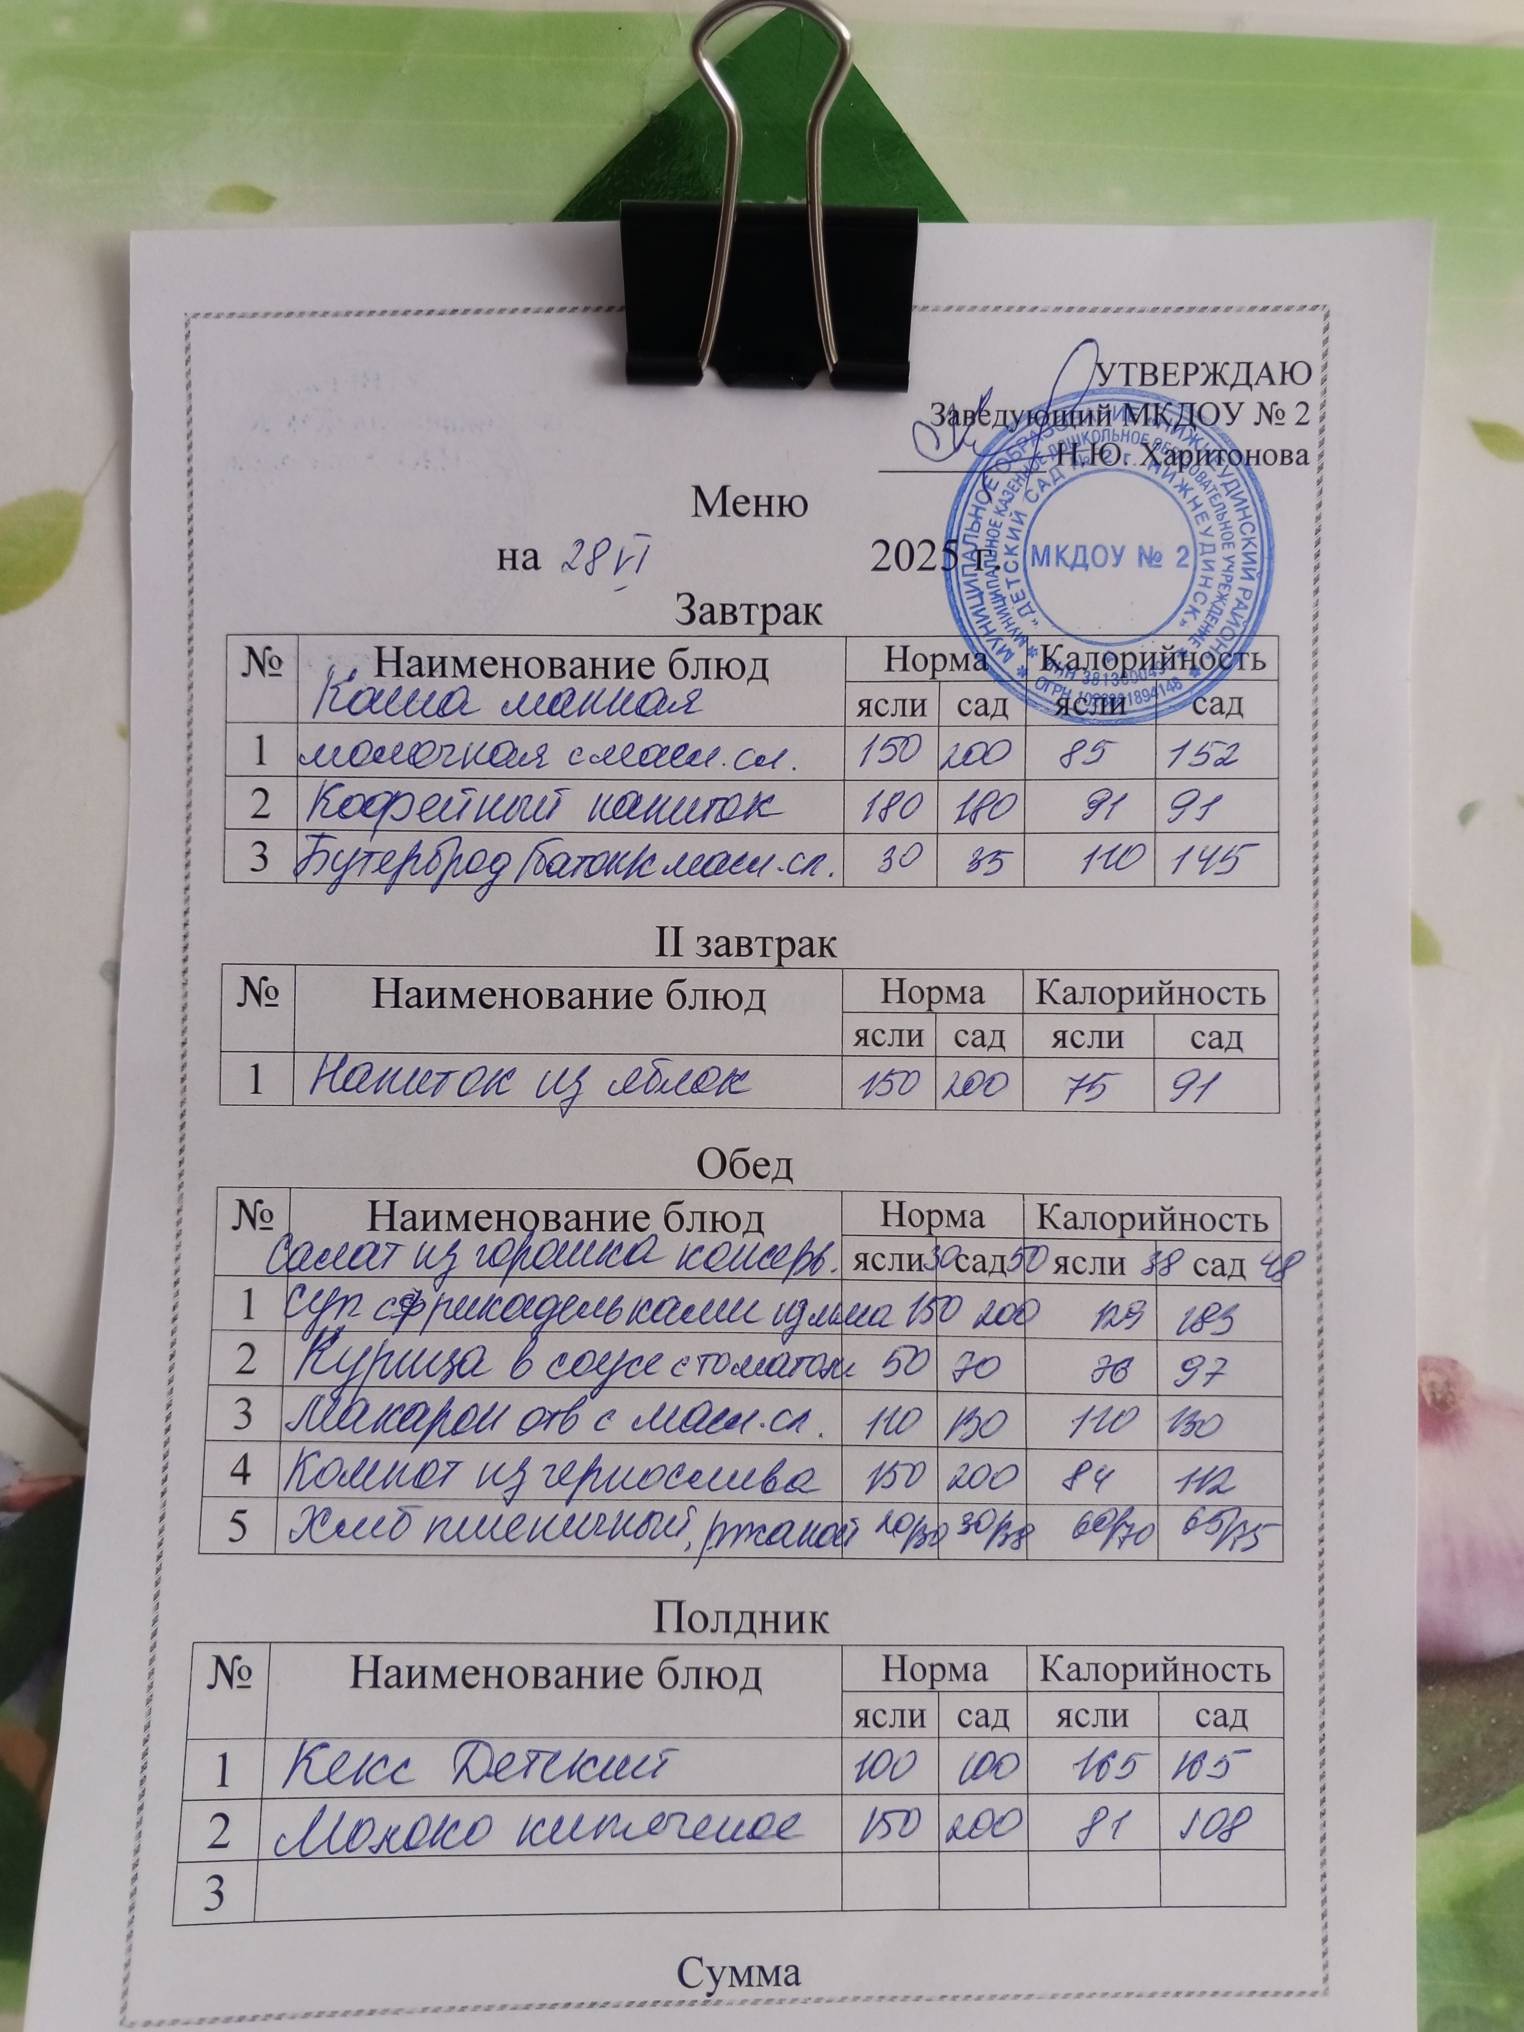 УТВЕРЖДАЮ
Заведующий МКДОУ № 2
Н.Ю. Харитонова
МУНИЦИПАЛЬНОЕ ОБРАЗОВАНИЕ «НИЖНЕУДИНСКИЙ РАЙОН»
МУНИЦИПАЛЬНОЕ КАЗЕННОЕ ДОШКОЛЬНОЕ ОБРАЗОВАТЕЛЬНОЕ УЧРЕЖДЕНИЕ
«ДЕТСКИЙ САД № 2 г. НИЖНЕУДИНСК»
МКДОУ № 2
Меню
на 28 VI 2025 г.
Завтрак
№ Наименование блюд Норма Калорийность
Каша манная ясли сад ясли сад
1 молочная с масл. сл. 150 200 85 152
2 Кофейный напиток 180 180 91 91
3 Бутерброд батон к масл. сл. 30 35 110 145
II завтрак
№ Наименование блюд Норма Калорийность
ясли сад ясли сад
1 Напиток из яблок 150 200 75 91
Обед
№ Наименование блюд Норма Калорийность
Салат из горошка консерв. ясли 30 сад 50 ясли 38 сад 48
1 Суп с фрикадельками из мяса 150 200 129 183
2 Курица в соусе с томатом 50 70 76 97
3 Макарон отв с масл. сл. 110 130 110 130
4 Компот из чернослива 150 200 84 112
5 Хлеб пшеничный, ржаной 20/30 30/38 60/70 65/75
Полдник
№ Наименование блюд Норма Калорийность
ясли сад ясли сад
1 Кекс Детский 100 100 165 165
2 Молоко кипяченое 150 200 81 108
3
Сумма